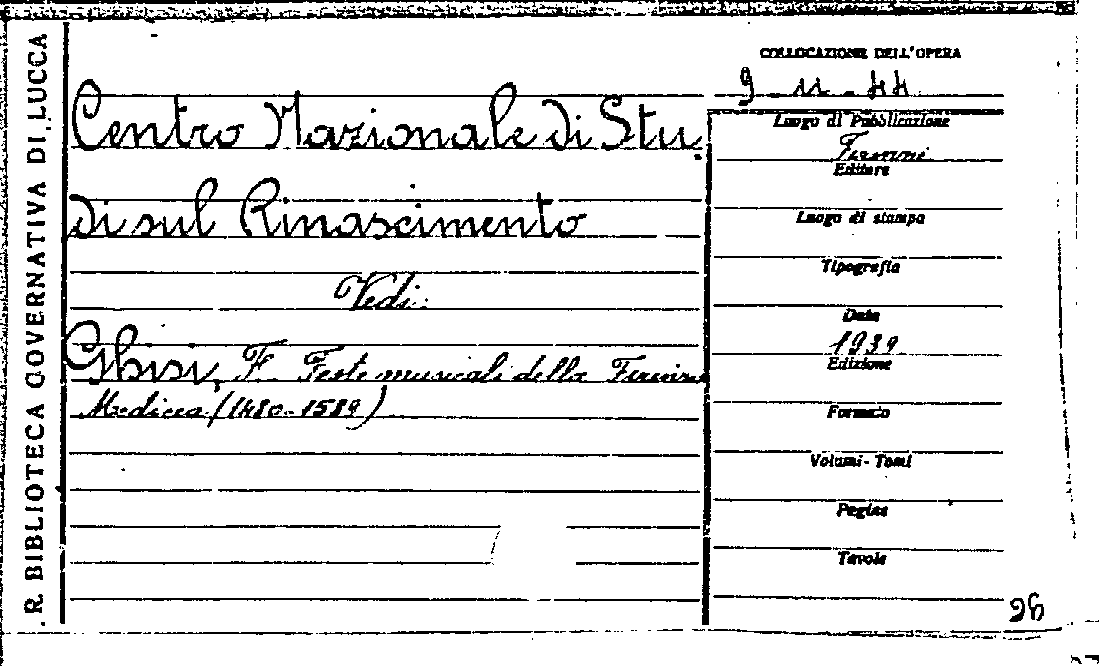 R. BIBLIOTECA GOVERNATIVA DI LUCCA
COLLOCAZIONE DELL'OPERA
9 - 11 - 44
Centro Nazionale di Stu-
di sul Rinascimento
Vedi:
Ghisi, F. Feste musicali della Firenze
Medicea (1480-1589)
Luogo di Pubblicazione
Firenze
Editore
Luogo di stampa
Tipografia
Data
1939
Edizione
Formato
Volumi - Tomi
Pagine
Tavole
96